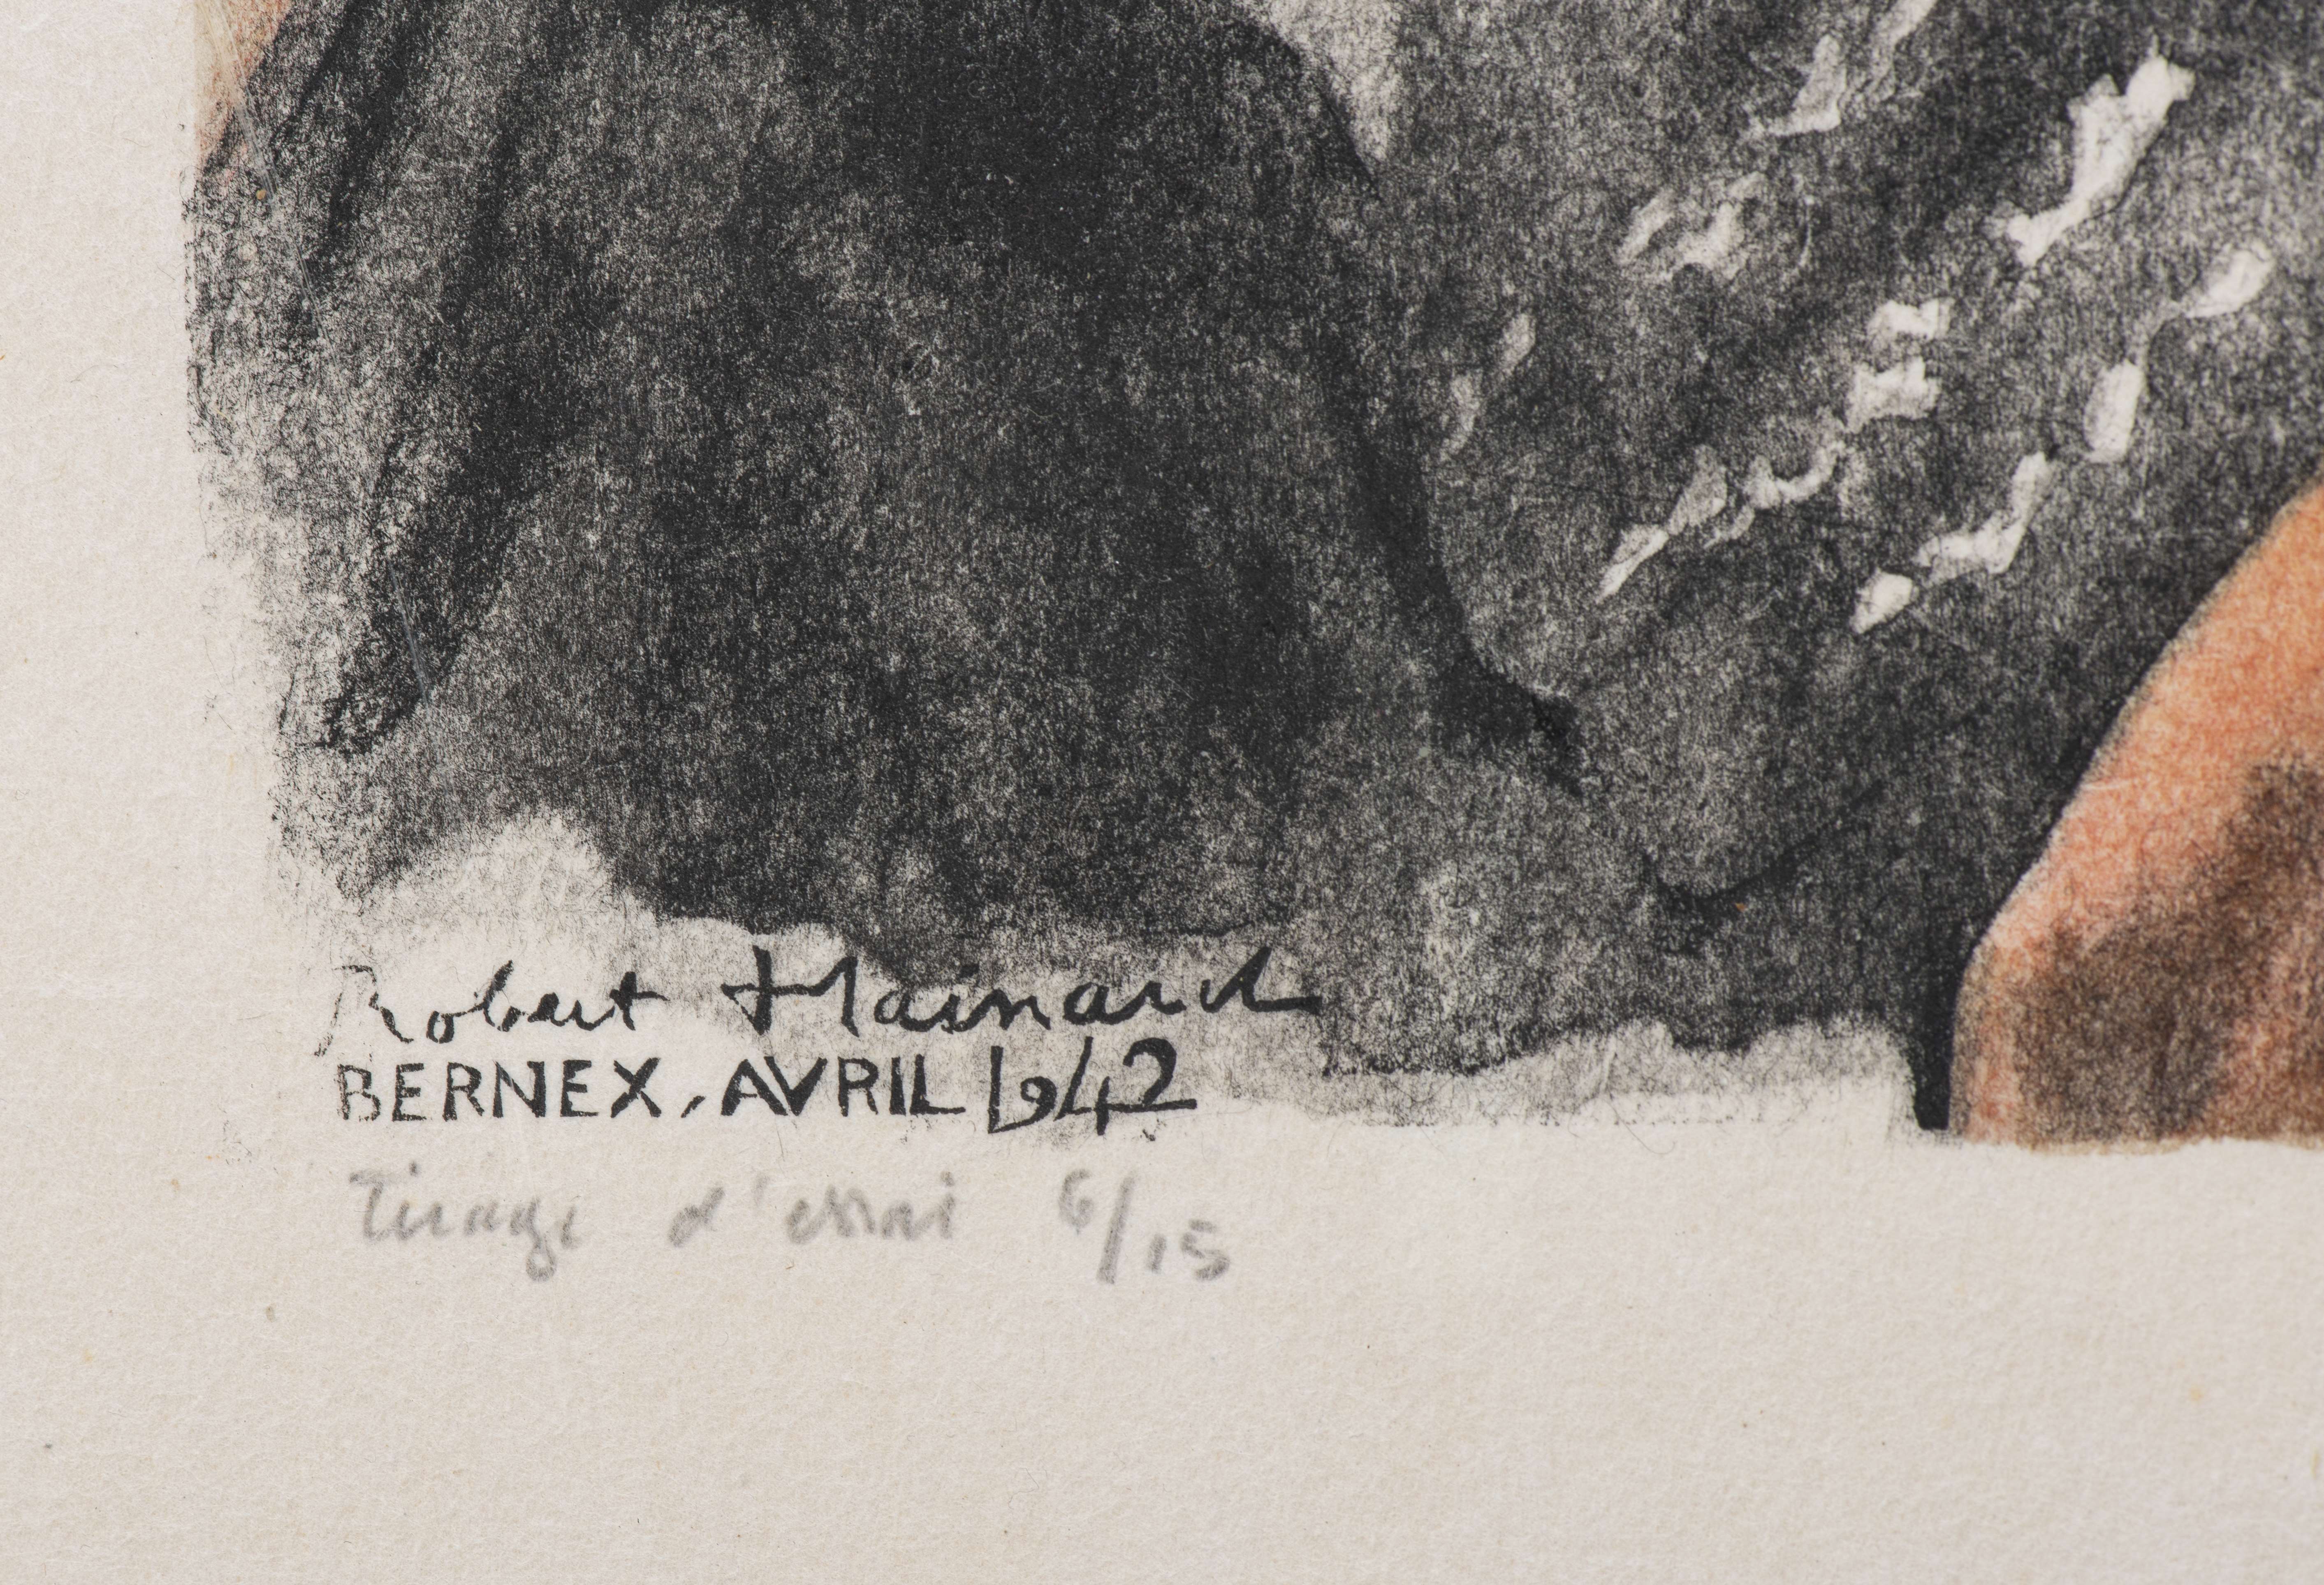 Robert Hainard
BERNEX, AVRIL 1942
Tirage d'essai 6/15